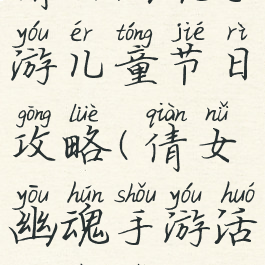 yóu ér tóng jié rì
游儿童节日
gōng lüè qiàn nǚ
攻略(倩女
yōu hún shǒu yóu huó
幽魂手游活